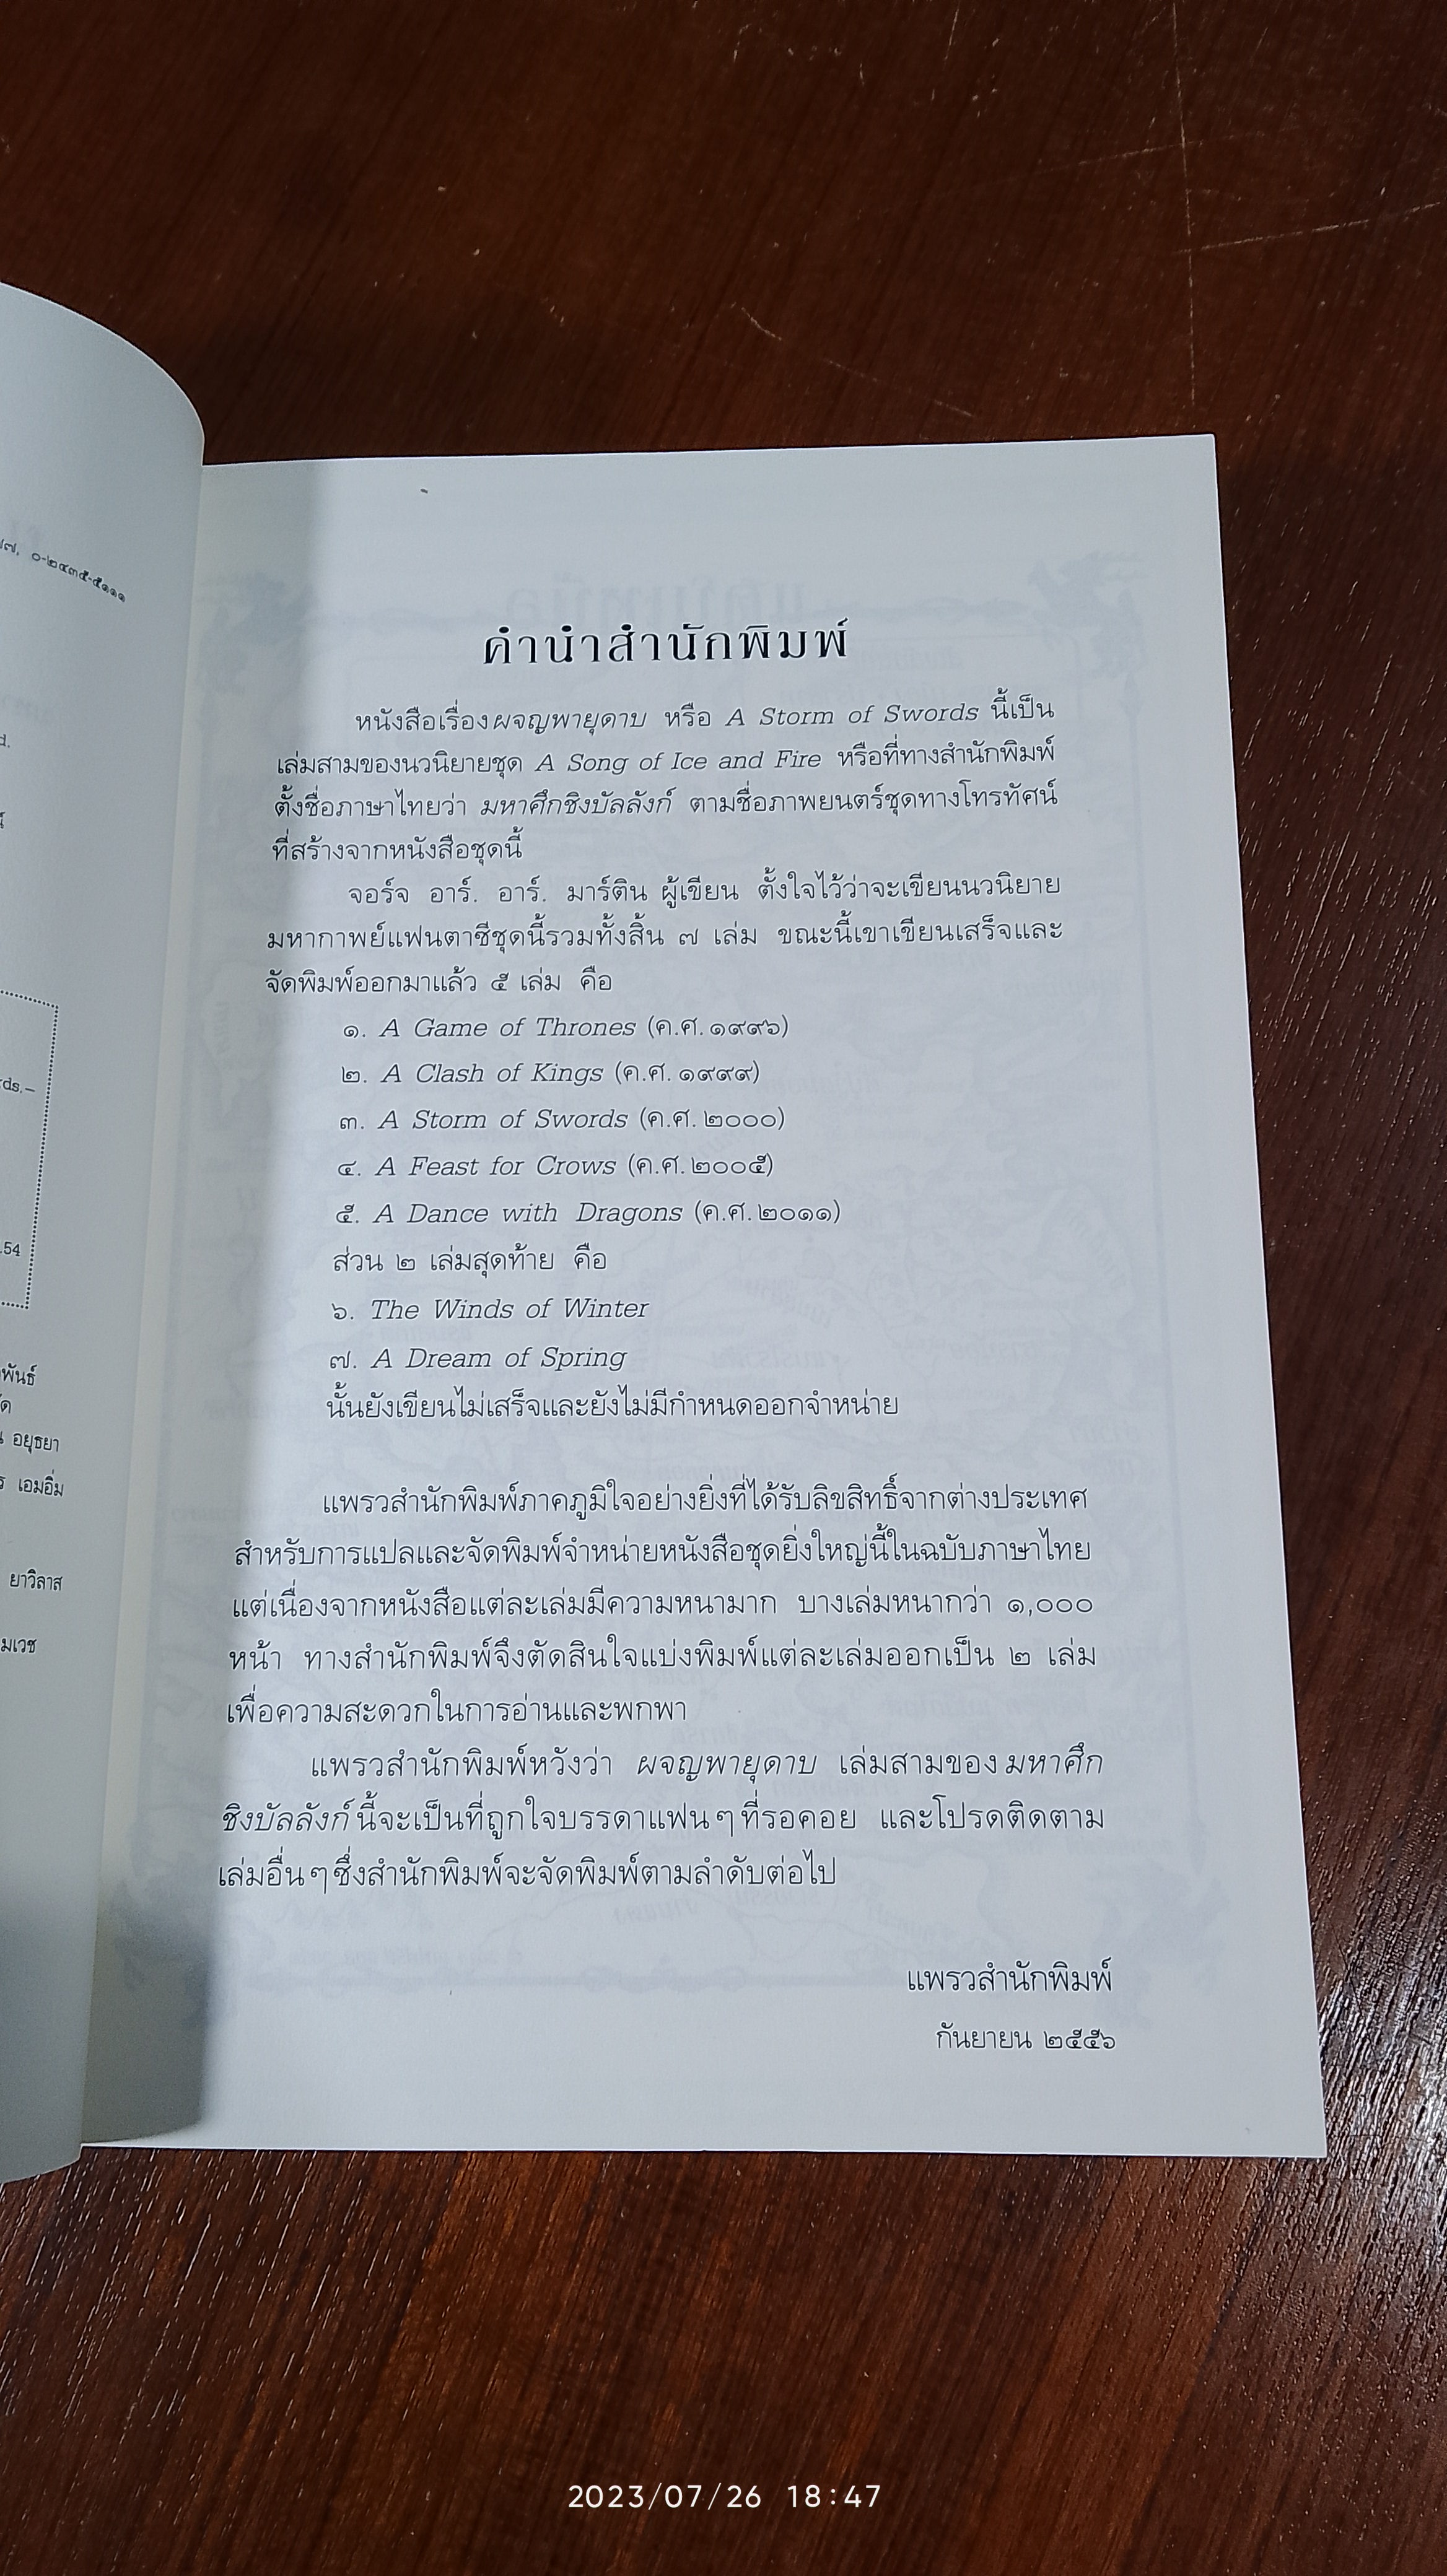 ๗๗, ๐-๒๔๓๕-๕๑๑๑
d.
ds.–
.54
พันธ์
อยุธยา
เอมอิ่ม
ยาวิลาส
มเวช
คำนำสำนักพิมพ์
หนังสือเรื่องผจญพายุดาบ หรือ A Storm of Swords นี้เป็น
เล่มสามของนวนิยายชุด A Song of Ice and Fire หรือที่ทางสำนักพิมพ์
ตั้งชื่อภาษาไทยว่า มหาศึกชิงบัลลังก์ ตามชื่อภาพยนตร์ชุดทางโทรทัศน์
ที่สร้างจากหนังสือชุดนี้
จอร์จ อาร์. อาร์. มาร์ติน ผู้เขียน ตั้งใจไว้ว่าจะเขียนนวนิยาย
มหากาพย์แฟนตาซีชุดนี้รวมทั้งสิ้น ๗ เล่ม ขณะนี้เขาเขียนเสร็จและ
จัดพิมพ์ออกมาแล้ว ๕ เล่ม คือ
๑. A Game of Thrones (ค.ศ. ๑๙๙๖)
๒. A Clash of Kings (ค.ศ. ๑๙๙๙)
๓. A Storm of Swords (ค.ศ. ๒๐๐๐)
๔. A Feast for Crows (ค.ศ. ๒๐๐๕)
๕. A Dance with Dragons (ค.ศ. ๒๐๑๑)
ส่วน ๒ เล่มสุดท้าย คือ
๖. The Winds of Winter
๗. A Dream of Spring
นั้นยังเขียนไม่เสร็จและยังไม่มีกำหนดออกจำหน่าย
แพรวสำนักพิมพ์ภาคภูมิใจอย่างยิ่งที่ได้รับลิขสิทธิ์จากต่างประเทศ
สำหรับการแปลและจัดพิมพ์จำหน่ายหนังสือชุดยิ่งใหญ่นี้ในฉบับภาษาไทย
แต่เนื่องจากหนังสือแต่ละเล่มมีความหนามาก บางเล่มหนากว่า ๑,๐๐๐
หน้า ทางสำนักพิมพ์จึงตัดสินใจแบ่งพิมพ์แต่ละเล่มออกเป็น ๒ เล่ม
เพื่อความสะดวกในการอ่านและพกพา
แพรวสำนักพิมพ์หวังว่า ผจญพายุดาบ เล่มสามของ มหาศึก
ชิงบัลลังก์ นี้จะเป็นที่ถูกใจบรรดาแฟน ๆ ที่รอคอย และโปรดติดตาม
เล่มอื่น ๆ ซึ่งสำนักพิมพ์จะจัดพิมพ์ตามลำดับต่อไป
แพรวสำนักพิมพ์
กันยายน ๒๕๕๖
2023/07/26 18:47